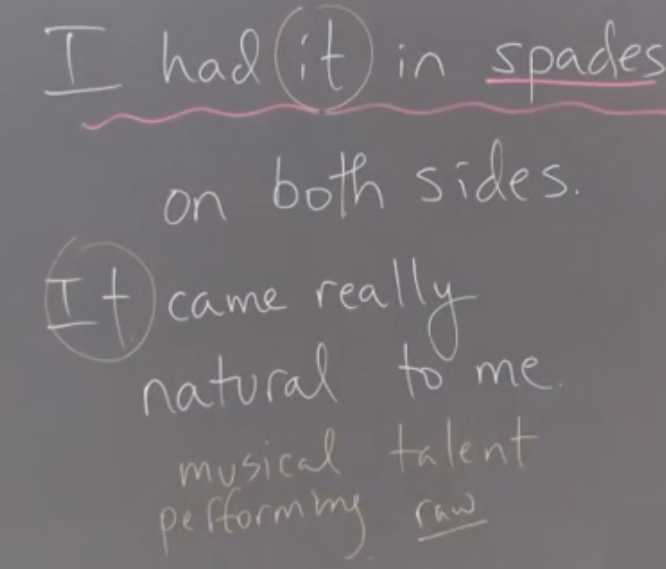 I had it in spades
on both sides.
It came really
natural to me.
musical talent
performing raw